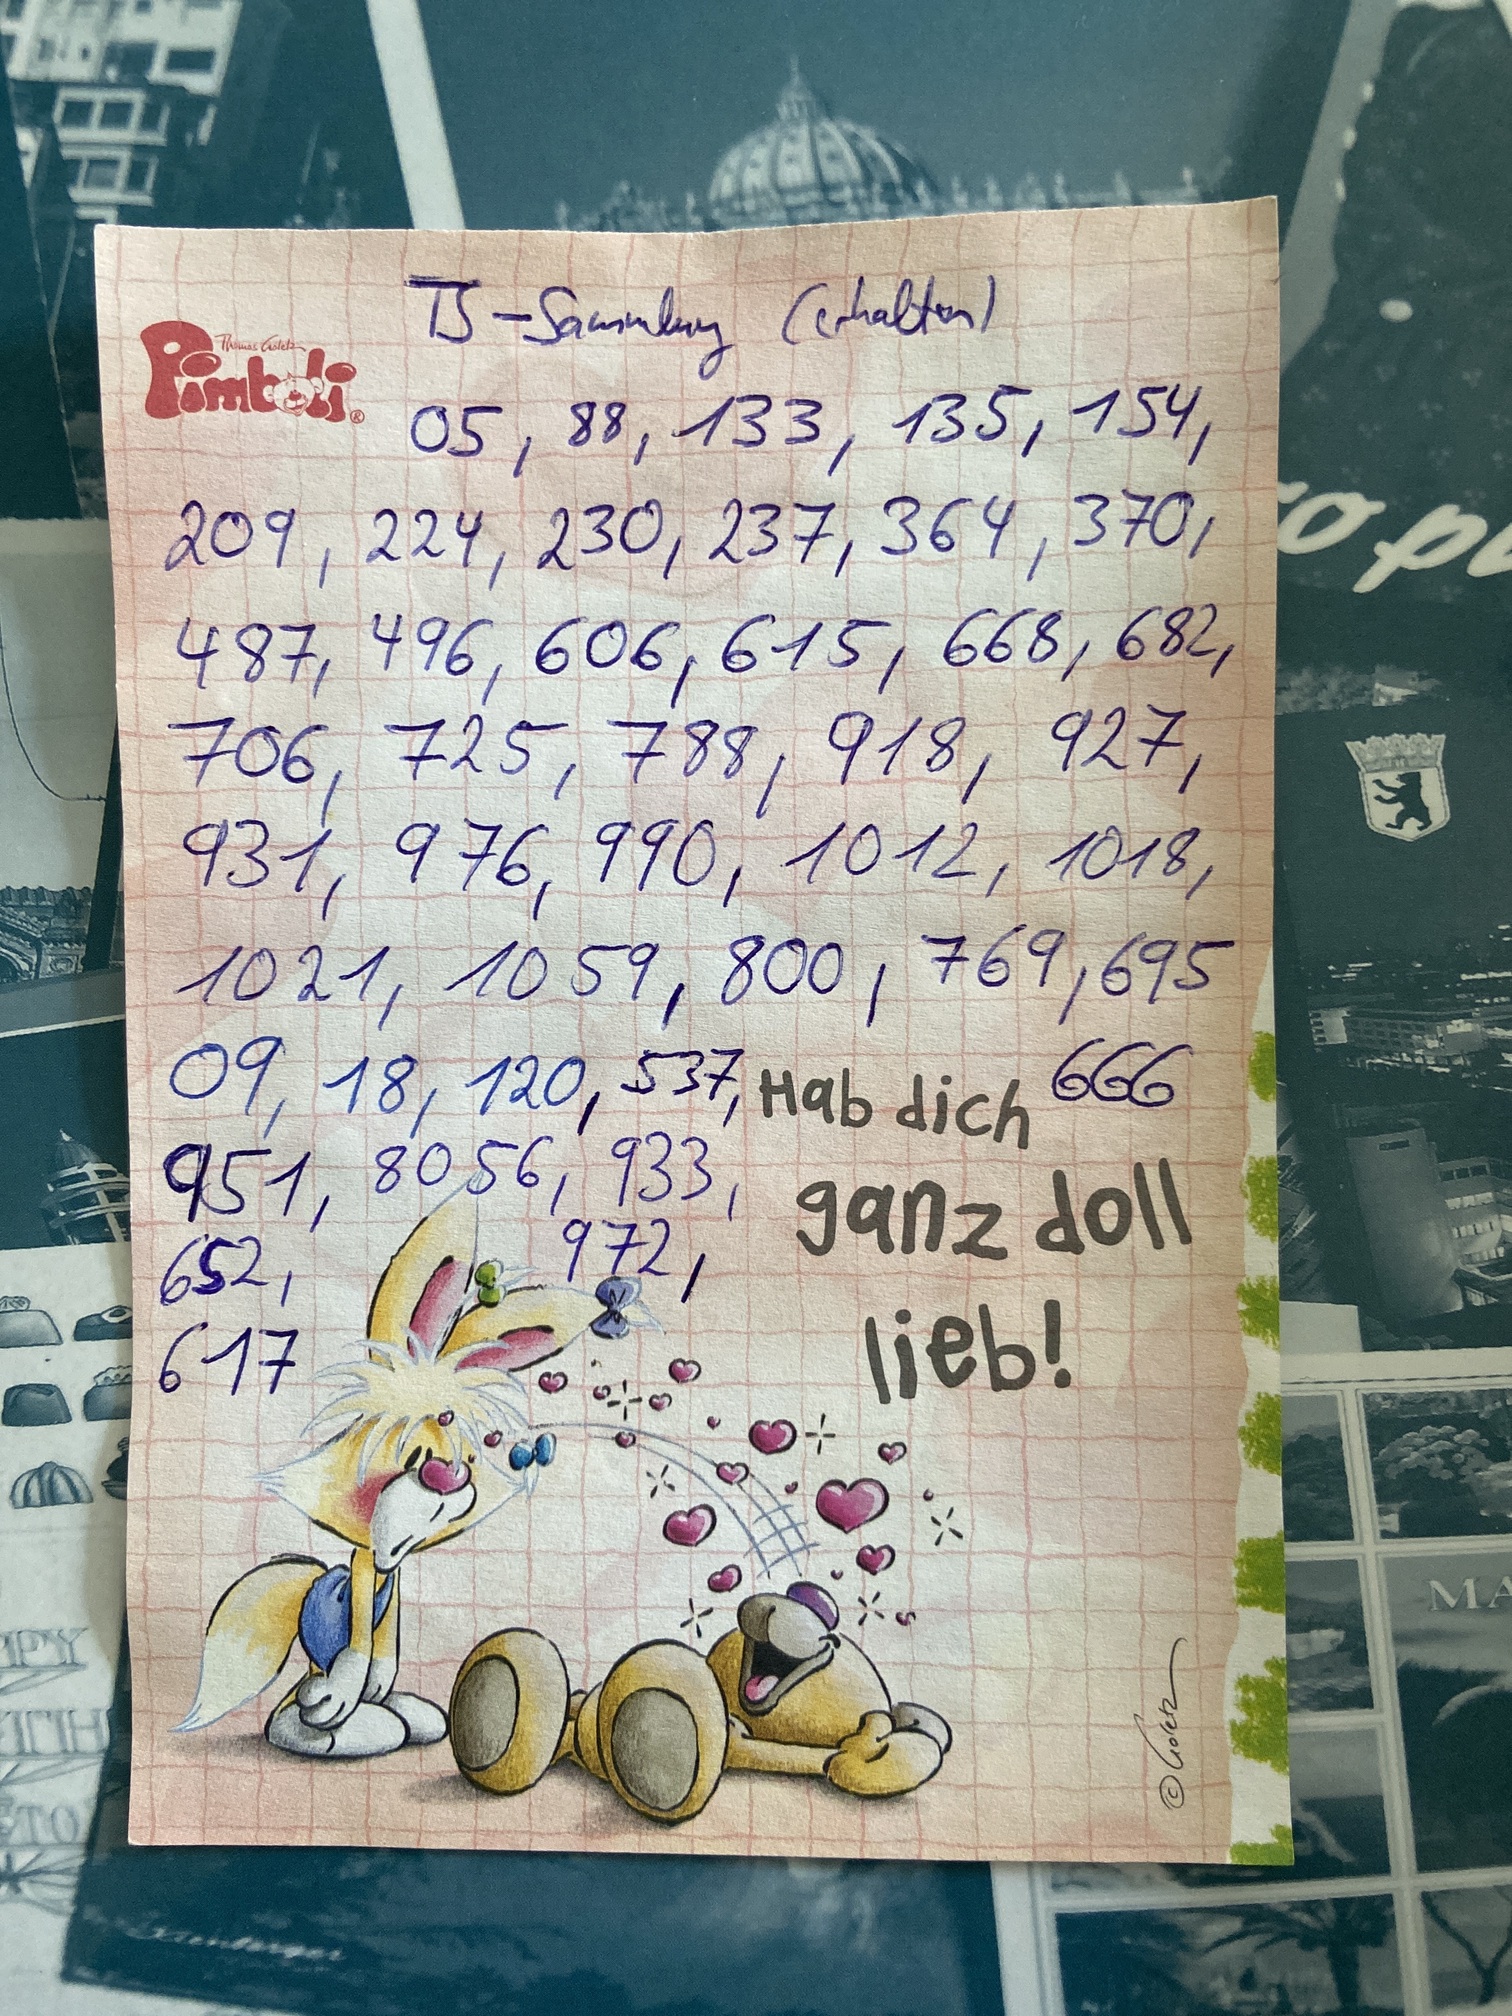 TS-Sammlung (erhalten)
Thomas Goletz
Pimboli®
05, 88, 133, 135, 154,
209, 224, 230, 237, 364, 370,
487, 496, 606, 615, 668, 682,
706, 725, 788, 918, 927,
931, 976, 990, 1012, 1018,
1021, 1059, 800, 769, 695
09, 18, 120, 537, 666
Hab dich
951, 8056, 933,
ganz doll
652, 972,
lieb!
617
© Goletz
to pu
MA
PPY